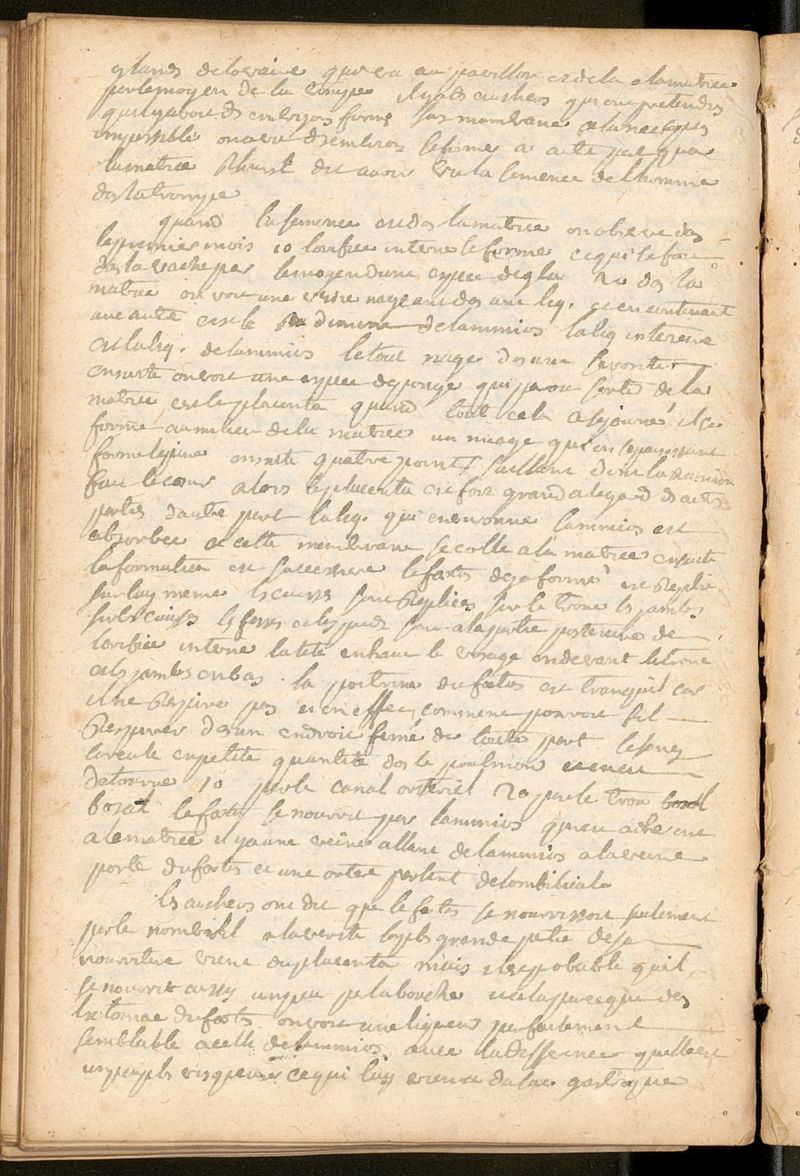 delovaire qui va au pavillon et de la a la matrice
par le moyen de la trompe il y a des autheurs qui ont pretendus
qui y avoit des embrions formé sur membrane
impossible on a vu d'embrion se former a cette
la matrice Rhuisk dit avoir vu la semence de l'homme
ds la trompe
quand la semence est ds la matrice on observe ds
les premiers mois 10 l'orifice interne se forme ce qui se fait
ds la vache par le moyen d'une espece de glu 20 ds la
matrice on voit une vessie nageant ds une liq. et en contenant
une autre c'est le de l'amnios la liq interieure
est la liq. de l'amnios le tout nage ds une
ensuite on voit une espece d'eponge qui sort de la
matrice c'est le placenta quand tout cela a sejourné il se
forme au milieu de la matrice un nuage qui en s'epaississant
forme l'epine ensuite quatre points saillant dont la reunion
fait le cœur alors le placenta est fort grand a l'egard ds autres
parties d'autre part la liq. qui environne l'amnios est
absorbée et cette membrane se colle a la matrice ensuite
la formation est successive le fœtus deja formé est replié
sur luy meme ls cuisses sont repliées sur le tronc ls jambes
sur ls cuisses ls fesses et les pieds sont a la partie posterieure de
l'orifice interne la tete en haut le visage en devant le tronc
et ls jambes en bas. la poitrine du fœtus est tranquil car
il ne respire pas et en effet comment pourroit il
respirer ds un endroit fermé de toute part le sang
circule en petite quantité ds le poulmon
detourné 10 par le canal arteriel 20 par le trou
botal le fœtus se nourrit par l'amnios qui est adherent
a la matrice il y a une veine allant de l'amnios a la veine
porte du fœtus et une artere partant de l'ombilicale
ls autheurs ont dit que le fœtus se nourrissoit seulement
par le nombril a la verité la pls grande partie de sa
nourriture vient du placenta mais il est probable qu'il
se nourrit aussy un peu par la bouche c'est parceque ds
l'estomac du fœtus on voit une liqueur parfaitement
semblable a celle de l'amnios avec la difference quelle est
un peu pls visqueuse ce qui luy vient du suc gastrique